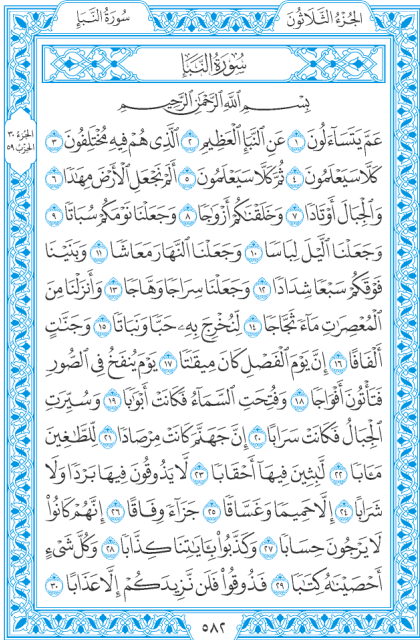 سُورَةُ النَّبَإِ
الجُزْءُ الثَّلَاثُونَ
سُورَةُ النَّبَإِ
الجُزْءُ ٣٠
الحِزْبُ ٥٩
بِسْمِ ٱللَّهِ ٱلرَّحْمَٰنِ ٱلرَّحِيمِ
عَمَّ يَتَسَآءَلُونَ ١ عَنِ ٱلنَّبَإِ ٱلْعَظِيمِ ٢ ٱلَّذِى هُمْ فِيهِ مُخْتَلِفُونَ ٣
كَلَّا سَيَعْلَمُونَ ٤ ثُمَّ كَلَّا سَيَعْلَمُونَ ٥ أَلَمْ نَجْعَلِ ٱلْأَرْضَ مِهَٰدًا ٦
وَٱلْجِبَالَ أَوْتَادًا ٧ وَخَلَقْنَٰكُمْ أَزْوَٰجًا ٨ وَجَعَلْنَا نَوْمَكُمْ سُبَاتًا ٩
وَجَعَلْنَا ٱلَّيْلَ لِبَاسًا ١٠ وَجَعَلْنَا ٱلنَّهَارَ مَعَاشًا ١١ وَبَنَيْنَا
فَوْقَكُمْ سَبْعًا شِدَادًا ١٢ وَجَعَلْنَا سِرَاجًا وَهَّاجًا ١٣ وَأَنزَلْنَا مِنَ
ٱلْمُعْصِرَٰتِ مَآءً ثَجَّاجًا ١٤ لِّنُخْرِجَ بِهِۦ حَبًّا وَنَبَاتًا ١٥ وَجَنَّٰتٍ
أَلْفَافًا ١٦ إِنَّ يَوْمَ ٱلْفَصْلِ كَانَ مِيقَٰتًا ١٧ يَوْمَ يُنفَخُ فِى ٱلصُّورِ
فَتَأْتُونَ أَفْوَاجًا ١٨ وَفُتِحَتِ ٱلسَّمَآءُ فَكَانَتْ أَبْوَٰبًا ١٩ وَسُيِّرَتِ
ٱلْجِبَالُ فَكَانَتْ سَرَابًا ٢٠ إِنَّ جَهَنَّمَ كَانَتْ مِرْصَادًا ٢١ لِّلطَّٰغِينَ
مَـَٔابًا ٢٢ لَّٰبِثِينَ فِيهَآ أَحْقَابًا ٢٣ لَّا يَذُوقُونَ فِيهَا بَرْدًا وَلَا
شَرَابًا ٢٤ إِلَّا حَمِيمًا وَغَسَّاقًا ٢٥ جَزَآءً وِفَاقًا ٢٦ إِنَّهُمْ كَانُوا۟
لَا يَرْجُونَ حِسَابًا ٢٧ وَكَذَّبُوا۟ بِـَٔايَٰتِنَا كِذَّابًا ٢٨ وَكُلَّ شَىْءٍ
أَحْصَيْنَٰهُ كِتَٰبًا ٢٩ فَذُوقُوا۟ فَلَن نَّزِيدَكُمْ إِلَّا عَذَابًا ٣٠
٥٨٢